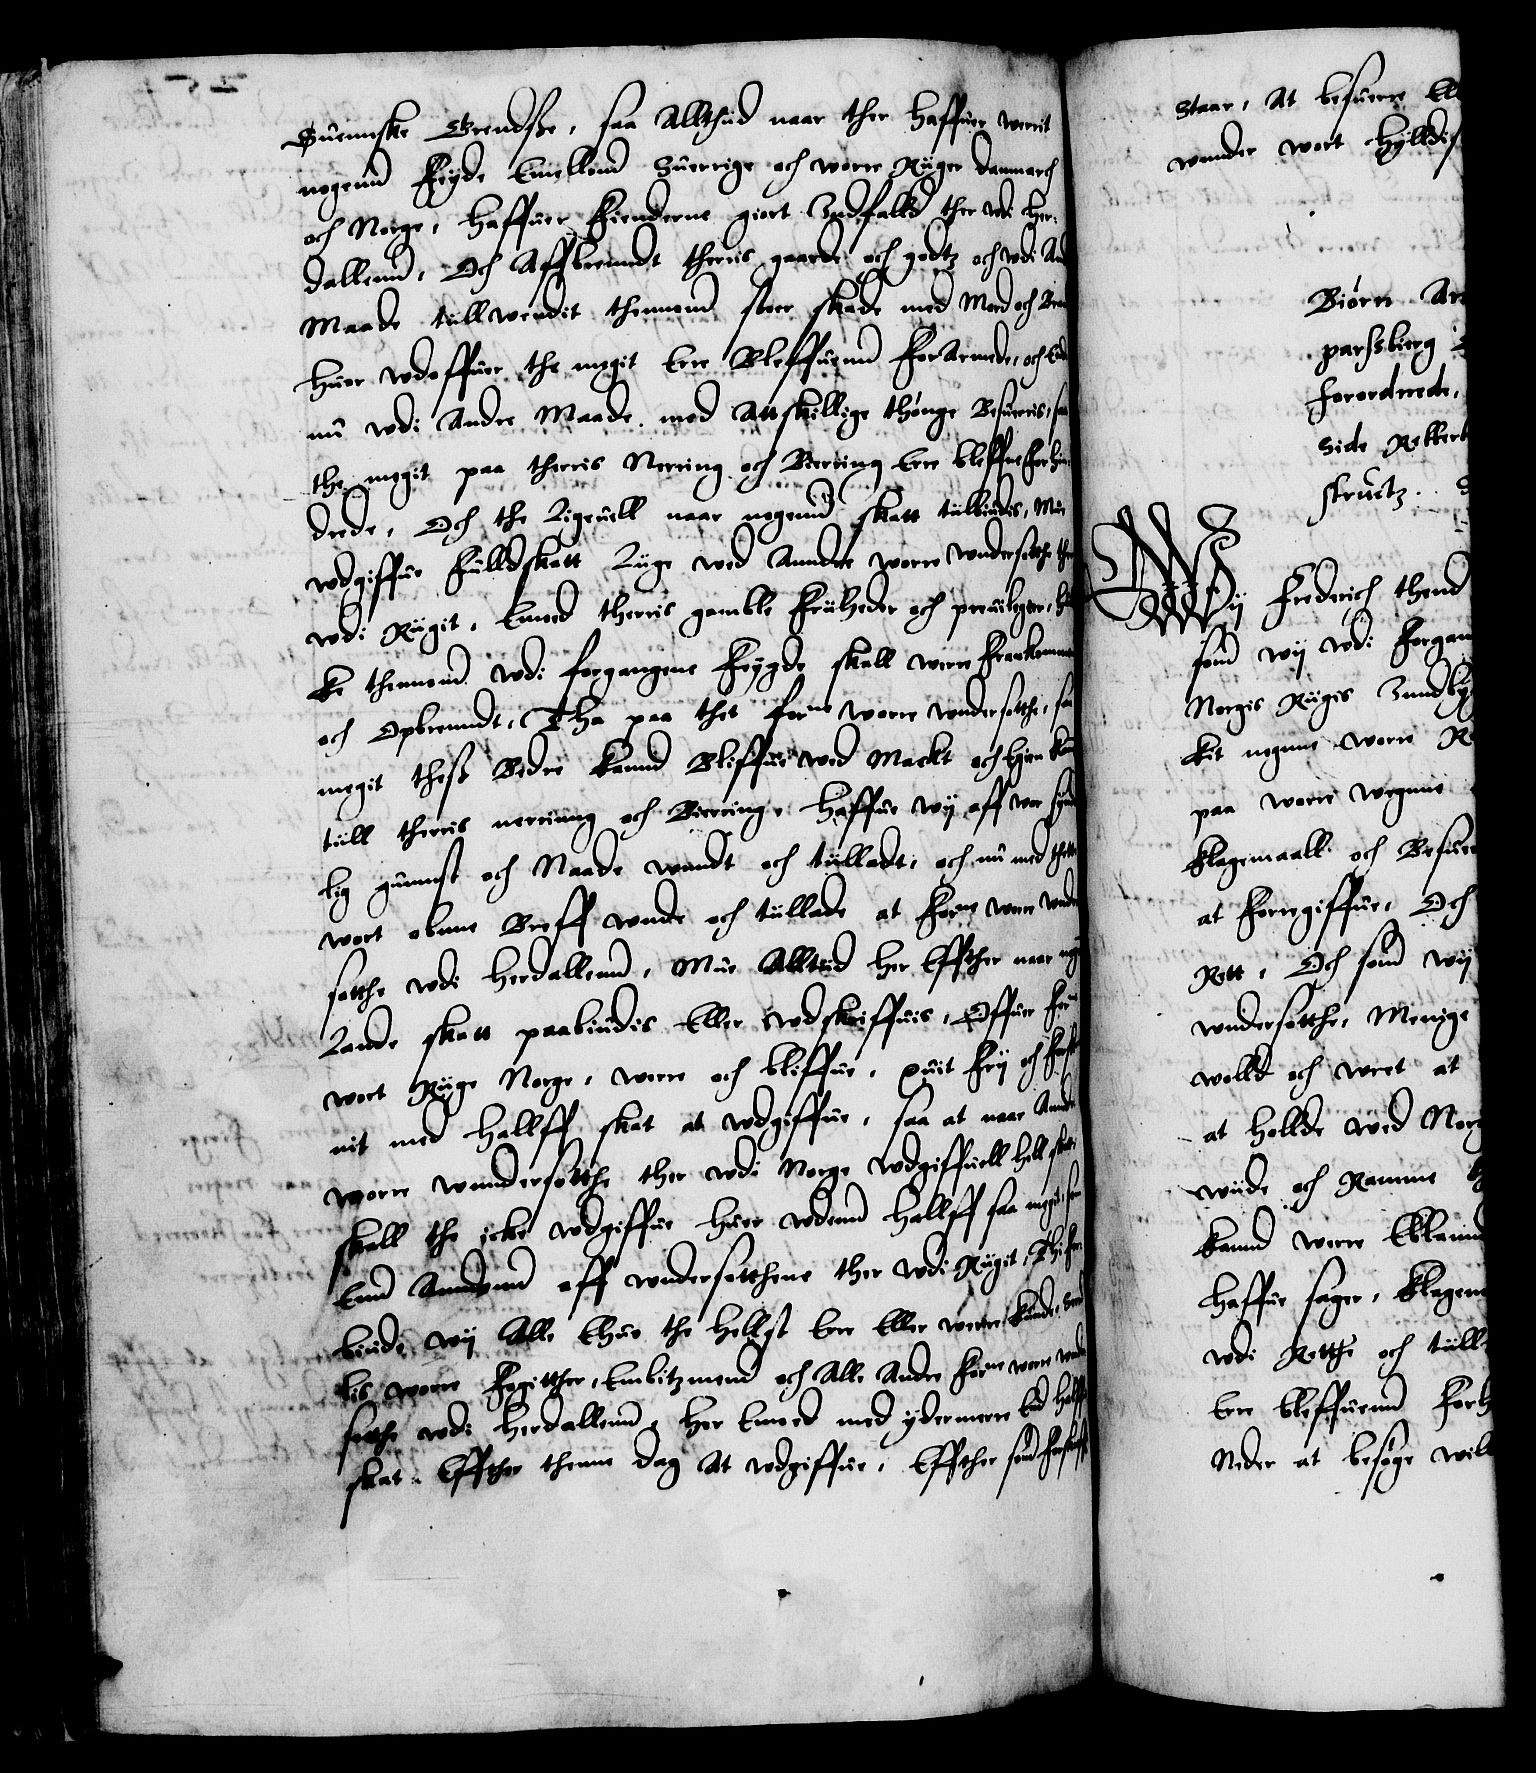 Suennske Grendsze, saa Alltiid naar ther haffuer werrit
nogenn Feyde Emellom Suerrige och worre Riiger Danmarch
och Norge, haffuer Fienderne giort Indfalld ther wdi Her-
dallenn, Och Affbrenndt therris gaarde och godtz och wdi And
Maade tiillwendit thennom stoer skade med Mord och Bran
huer wdoffuer the megit ere Bleffuenn ForArmede, och End
nu wdi Andre Maade med Attskillige thönge Besueris, saa
the megit paa therris Nering och Biering ere bleffne forhin-
drede, Och the Ligeuell naar nogenn skatt tiilbiudis, Mue
wdgiffue Fulldskatt Liige wed Anndre worre wndersotthe ther
wdi Riigit, Emod therris gamble Friiheder och preuileger, huil
ke thennom wdi forgangene Feygde skall werre Frankommen
och Opbrenndt, Tha paa thet forne worre wndersotthe, saa
megit thess Bedre kannd Bliffue wed Mackt och hien kom
tiill therris nerinng och Biering, Haffue wij aff wor synder
lig gunnst och Naade wnndt och tiilladt, och nu med thette
wort obne Breff wnde och tiillade at Forne worre wnder
sotthe wdi Herdallenn, Mue Alltiid her Effther naar nogen
Lande skatt paabiudis Eller wdskriffuis, Offuer
wort Riige Norge, werre och bliffue, quit Frij och
nit med hallff skat at wdgiffue, saa at naar Andre
worre wnndersötthe ther wdi Norge wdgiffue ell hell skatt
skall the icke wdgiffue huer wdenn hallff saa megit, som
Enn Annden aff wndersotthene ther wdi Riigit, Thi for-
biude wij Alle Ehuo the hellst ere Eller werre kunde, Serde-
lis worre Fogitther, Embitzmend och Alle Andre Forne worre wnder
sothe wdi Herdallenn, her Emod med ydermere End halff
skat Effther thenne dag At wdgiffue, Effther som forskreffuit
Staar, At besuerre Ell
wnnder wort Hylldis
Biörn An
parssbierg
forordnede,
Side Rekker
structz.
Wij Frederich thend
som wij wdi forgan
Norgis Riigis Indby
kit nogenne worre
paa worre wegnne
klagemaall och Besuer
at Forregiffue, Och
Rett, Och som wij
wndersotthe, Menige
wolld och wret at
at hollde wed Norg
wiide och Ramme
kannd werre Ebland
haffue sager, Klagem
wdi Retthe och tiill
ere bleffuenn Forh
Neder at besöge will